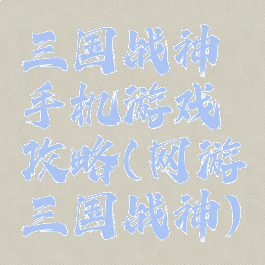 三国战神
手机游戏
攻略(网游
三国战神)